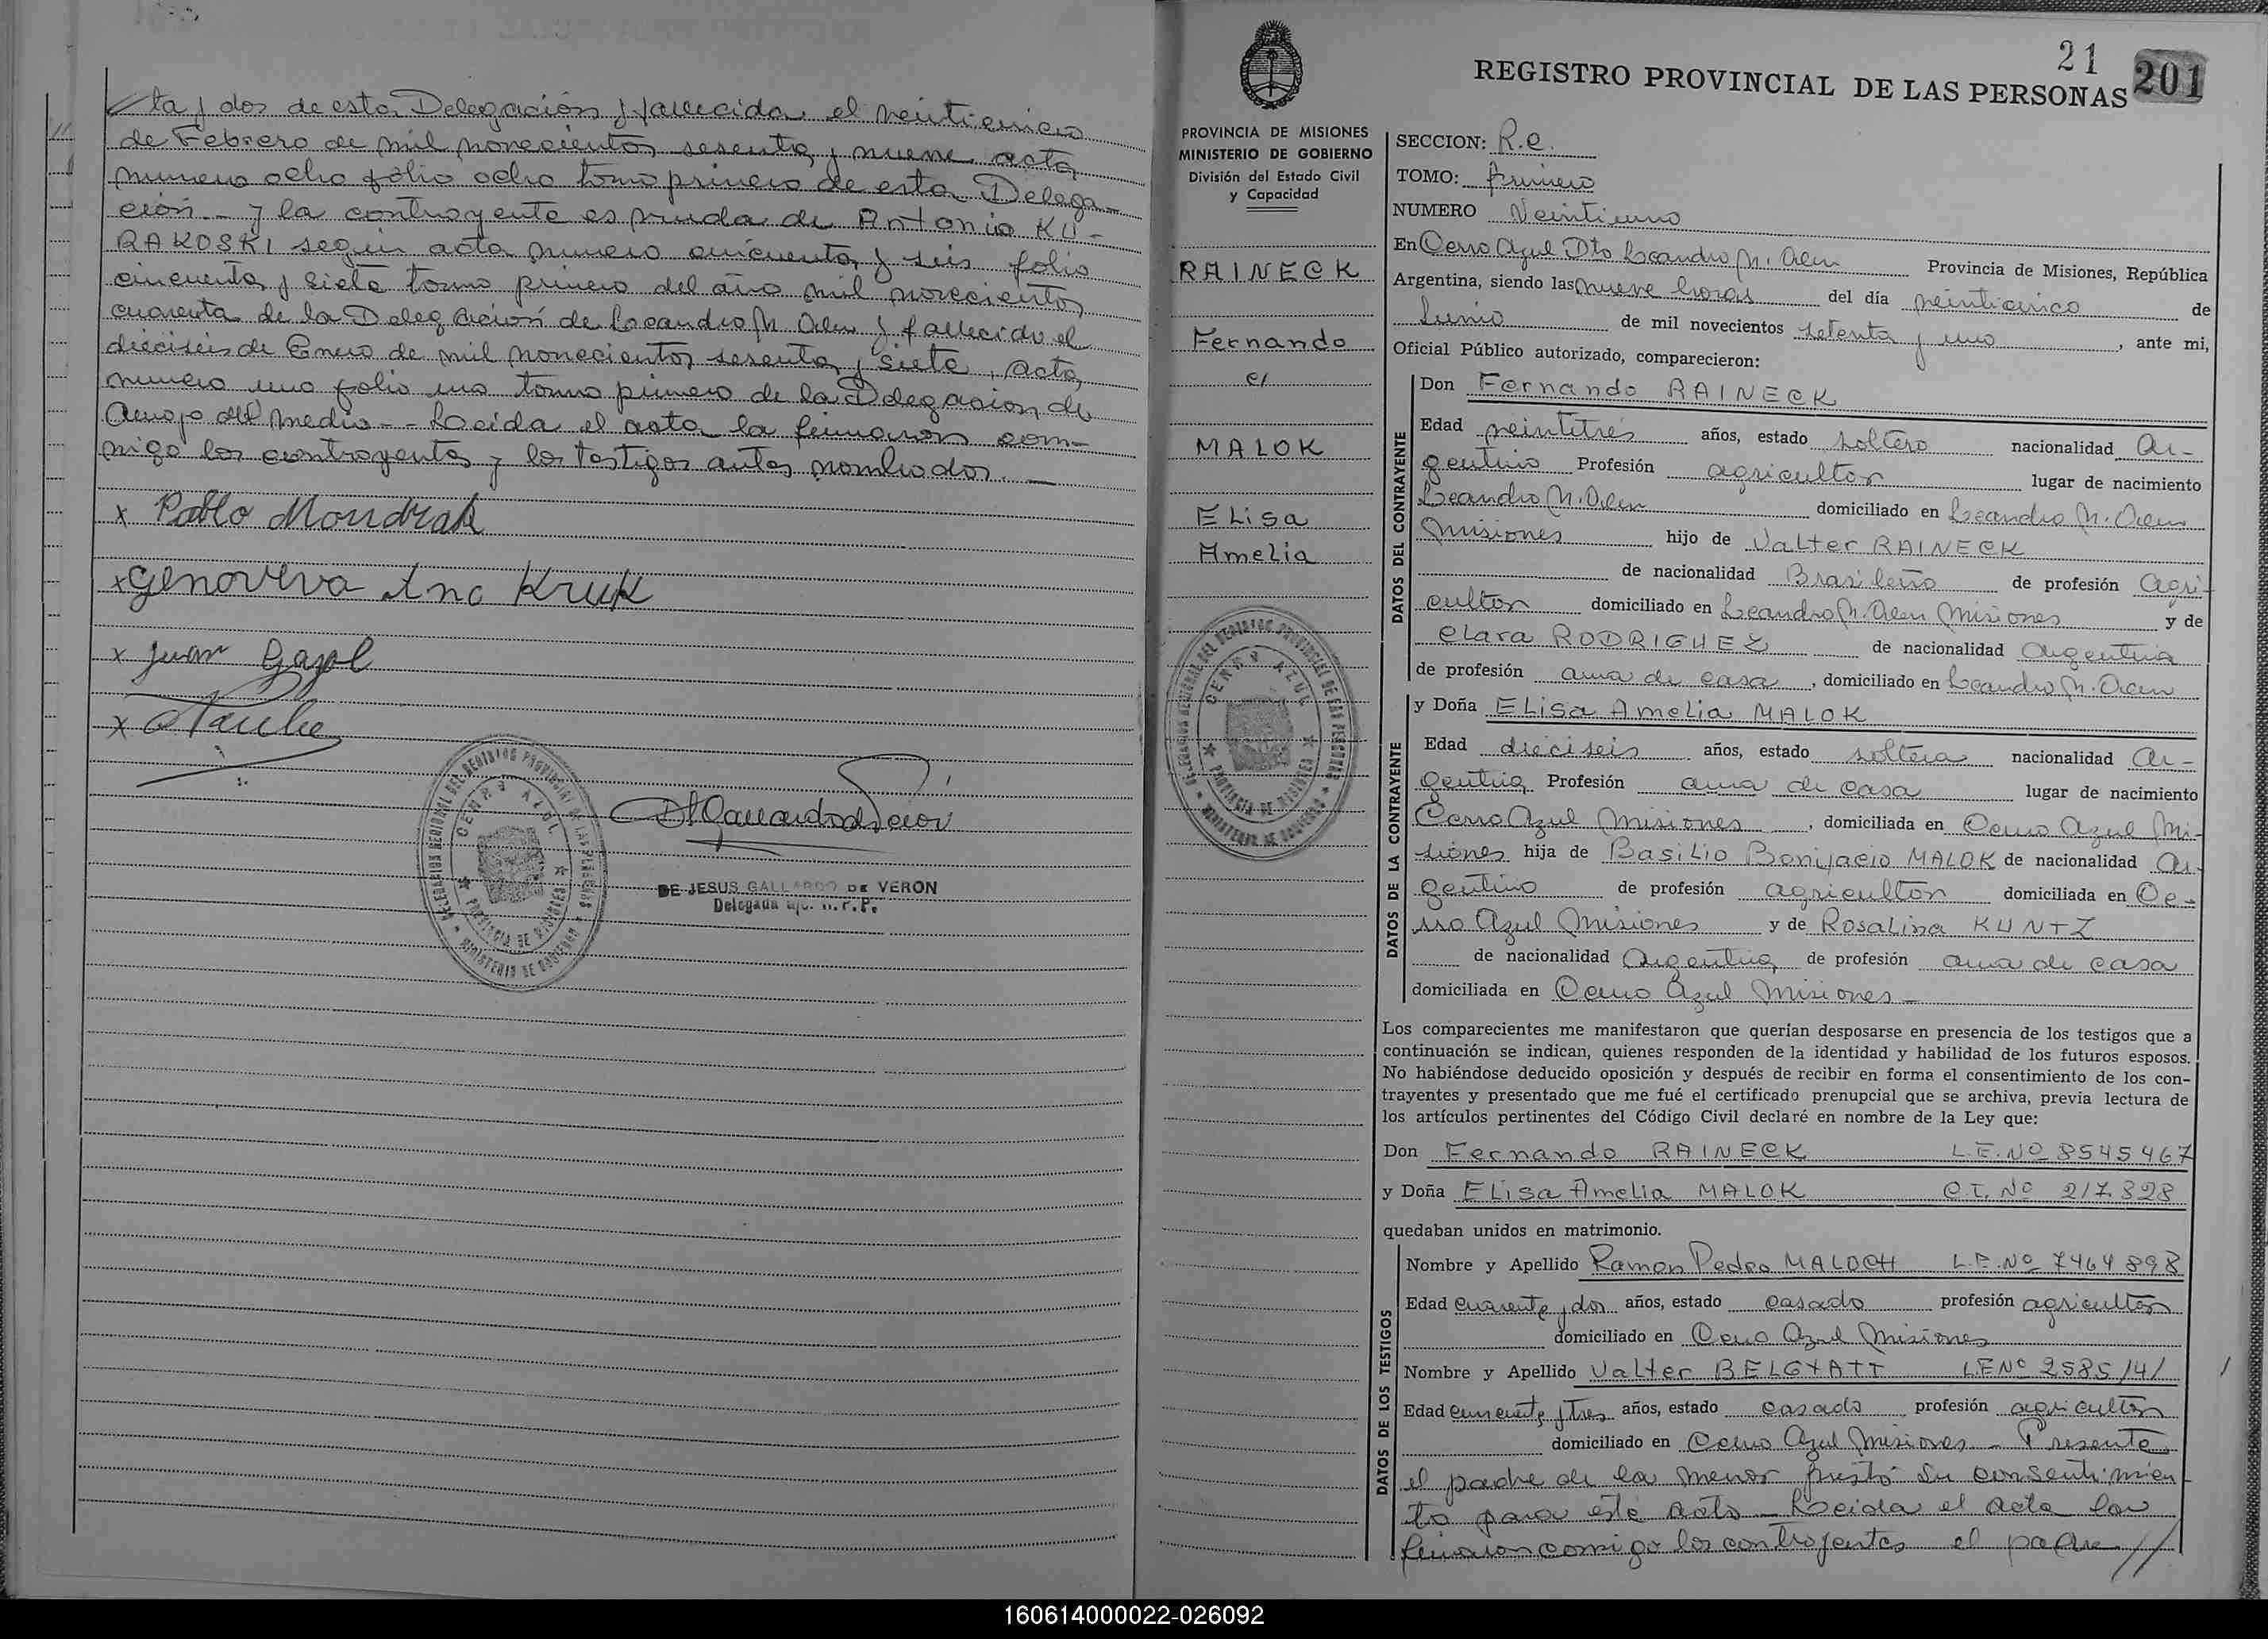 ta y dos de esta Delegación y fallecida el veinticinco
de Febrero de mil novecientos sesenta y nueve acta
número ocho folio ocho tomo primero de esta Delega-
ción - y la contrayente es viuda de Antonio KU-
RAKOSKI según acta número cincuenta y seis folio
cincuenta y siete tomo primero del año mil novecientos
cuarenta de la Delegación de Leandro N. Alem y fallecido el
dieciseis de Enero de mil novecientos sesenta y siete, acta
número uno folio uno tomo primero de la Delegación de
Arroyo del Medio - Leída el acta la firmaron con-
migo los contrayentes y los testigos antes nombrados. —
x Pablo Mondrak
x Genoveva Ana Kruk
x Juan Gazol
x
DE JESUS GALLARDO DE VERON
Delegada
DELEGACION REGIONAL DEL REGISTRO PROVINCIAL DE LAS PERSONAS
CERRO AZUL
PROVINCIA DE MISIONES
MINISTERIO DE GOBIERNO
21
201
REGISTRO PROVINCIAL DE LAS PERSONAS
PROVINCIA DE MISIONES
MINISTERIO DE GOBIERNO
División del Estado Civil
y Capacidad
RAINECK
Fernando
c/
MALOK
Elisa
Amelia
DELEGACION REGIONAL DEL REGISTRO PROVINCIAL DE LAS PERSONAS
CERRO AZUL
PROVINCIA DE MISIONES
MINISTERIO DE GOBIERNO
SECCION: R.e.
TOMO: Primero
NUMERO Veintiuno
En Cerro Azul Dto Leandro N. Alem Provincia de Misiones, República
Argentina, siendo las nueve horas del día veinticinco de
Junio de mil novecientos setenta y uno, ante mi,
Oficial Público autorizado, comparecieron:
DATOS DEL CONTRAYENTE
Don Fernando RAINECK
Edad veintitrés años, estado soltero nacionalidad Ar-
gentino Profesión agricultor lugar de nacimiento
Leandro N. Alem domiciliado en Leandro N. Alem
Misiones hijo de Valter RAINECK
de nacionalidad Brasileño de profesión Agri-
cultor domiciliado en Leandro N. Alem Misiones y de
Clara RODRIGUEZ de nacionalidad Argentina
de profesión ama de casa, domiciliado en Leandro N. Alem
DATOS DE LA CONTRAYENTE
y Doña Elisa Amelia MALOK
Edad dieciseis años, estado soltera nacionalidad Ar-
gentina Profesión ama de casa lugar de nacimiento
Cerro Azul Misiones, domiciliada en Cerro Azul Mi-
siones hija de Basilio Bonifacio MALOK de nacionalidad Ar-
gentino de profesión agricultor domiciliada en Ce-
rro Azul Misiones y de Rosalina KUNTZ
de nacionalidad Argentina de profesión ama de casa
domiciliada en Cerro Azul Misiones —
Los comparecientes me manifestaron que querían desposarse en presencia de los testigos que a
continuación se indican, quienes responden de la identidad y habilidad de los futuros esposos.
No habiéndose deducido oposición y después de recibir en forma el consentimiento de los con-
trayentes y presentado que me fué el certificado prenupcial que se archiva, previa lectura de
los artículos pertinentes del Código Civil declaré en nombre de la Ley que:
Don Fernando RAINECK L.E. Nº 8545467
y Doña Elisa Amelia MALOK C.I. Nº 217.328
quedaban unidos en matrimonio.
DATOS DE LOS TESTIGOS
Nombre y Apellido Ramon Pedro MALOCH L.E. Nº 7464898
Edad cuarenta y dos años, estado casado profesión agricultor
domiciliado en Cerro Azul Misiones
Nombre y Apellido Valter BELGYATT L.E Nº 2585141
Edad cincuenta y tres años, estado casado profesión agricultor
domiciliado en Cerro Azul Misiones - Presente
el padre de la menor prestó su consentimien-
to para este acto - Leida el acta la
firmaron conmigo los contrayentes el padre //
160614000022-026092